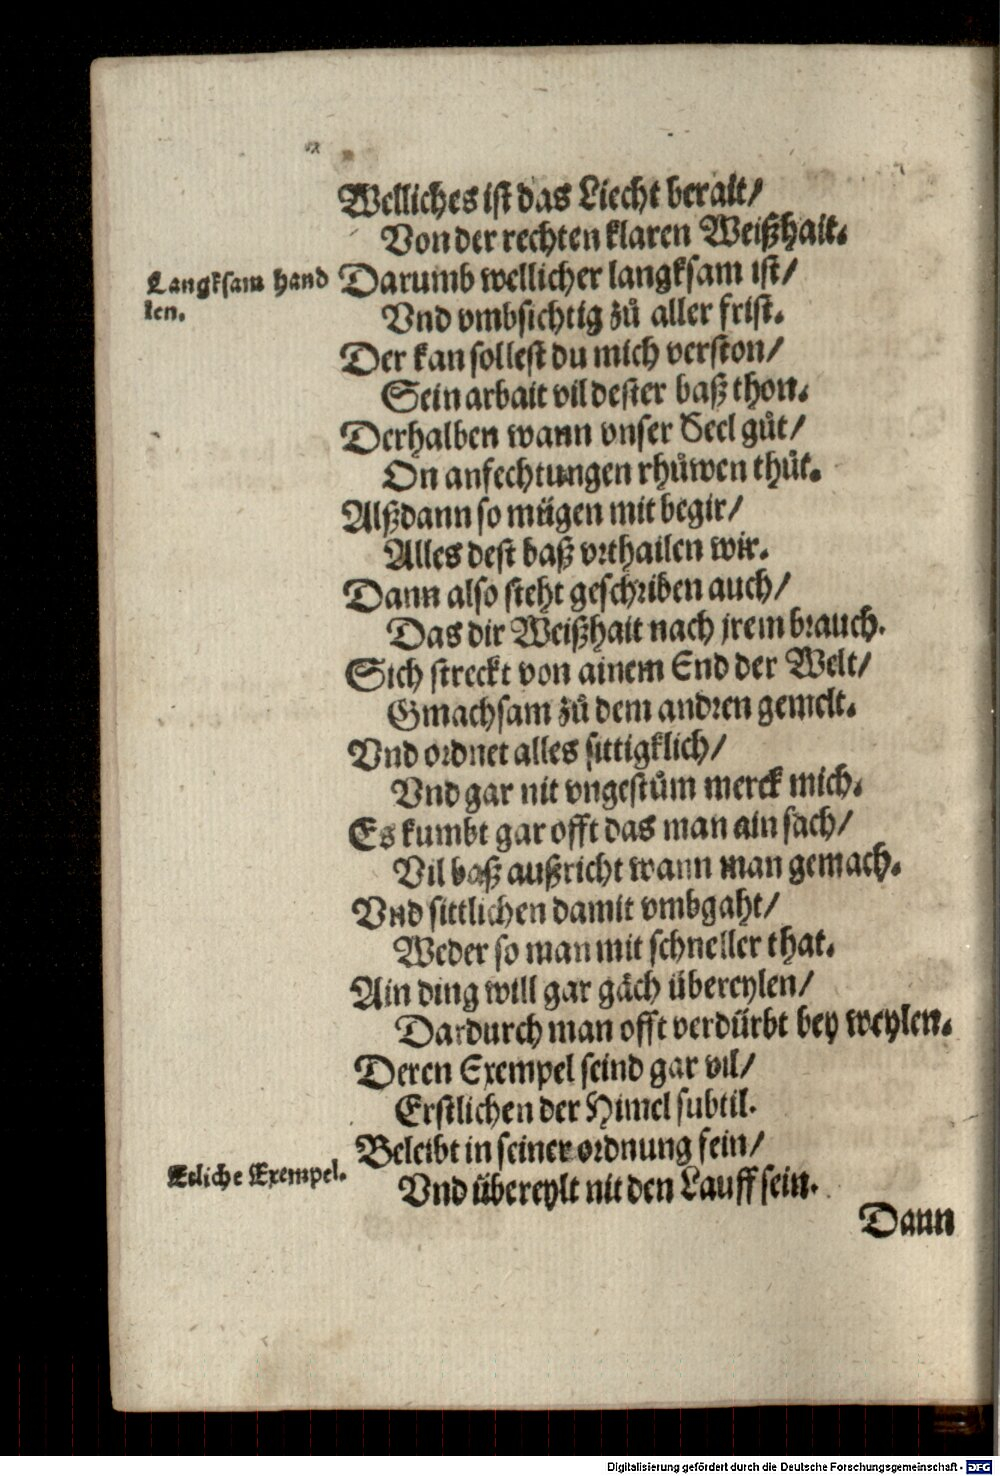 Welliches ist das Liecht berait/
Von der rechten klaren Weißhait.
Langksam hand
len.
Darumb wellicher langksam ist/
Vnd vmbsichtig zů aller frist.
Der kan sollest du mich verston/
Sein arbait vil dester baß thon.
Derhalben wann vnser Seel gůt/
On anfechtungen rhůwen thůt.
Alßdann so mügen mit begir/
Alles dest baß vrthailen wir.
Dann also steht geschriben auch/
Das dir Weißhait nach jrem brauch.
Sich streckt von ainem End der Welt/
Gmachsam zů dem andren gemelt.
Vnd ordnet alles sittigklich/
Vnd gar nit vngestům merck mich.
Es kumbt gar offt das man ain sach/
Vil baß außricht wann man gemach.
Vnd sittlichen damit vmbgaht/
Weder so man mit schneller that.
Ain ding will gar gäch übereylen/
Dardurch man offt verdürbt bey weylen.
Deren Exempel seind gar vil/
Erstlichen der Himel subtil.
Beleibt in seiner ordnung fein/
Etliche Exempel.
Vnd übereylt nit den Lauff sein.
Dann
Digitalisierung gefördert durch die Deutsche Forschungsgemeinschaft - DFG